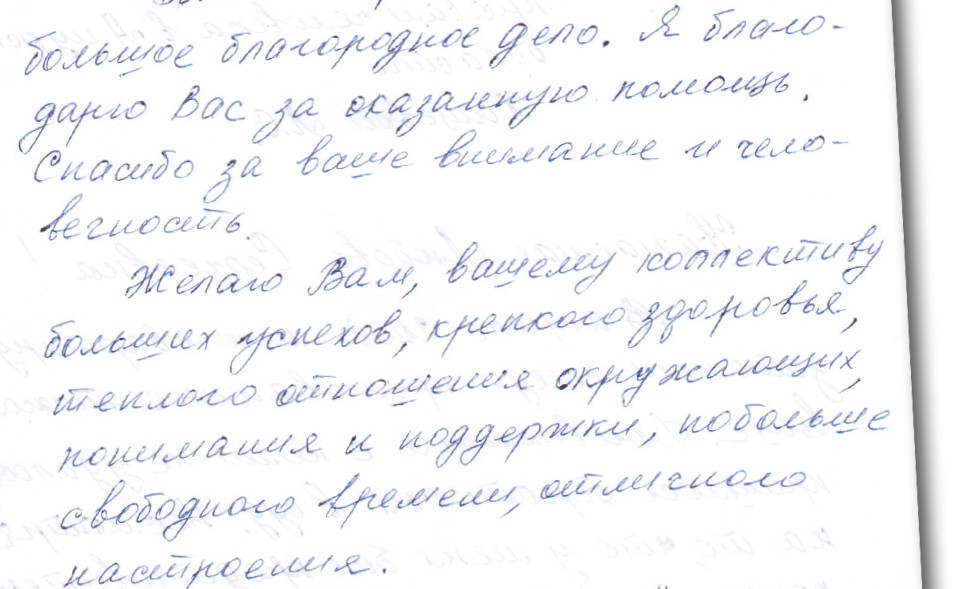 большое благородное дело. Я благо-
дарю Вас за оказанную помощь.
Спасибо за ваше внимание и чело-
вечность.
Желаю Вам, вашему коллективу
больших успехов, крепкого здоровья,
теплого отношения окружающих,
понимания и поддержки, побольше
свободного времени, отличного
настроения.